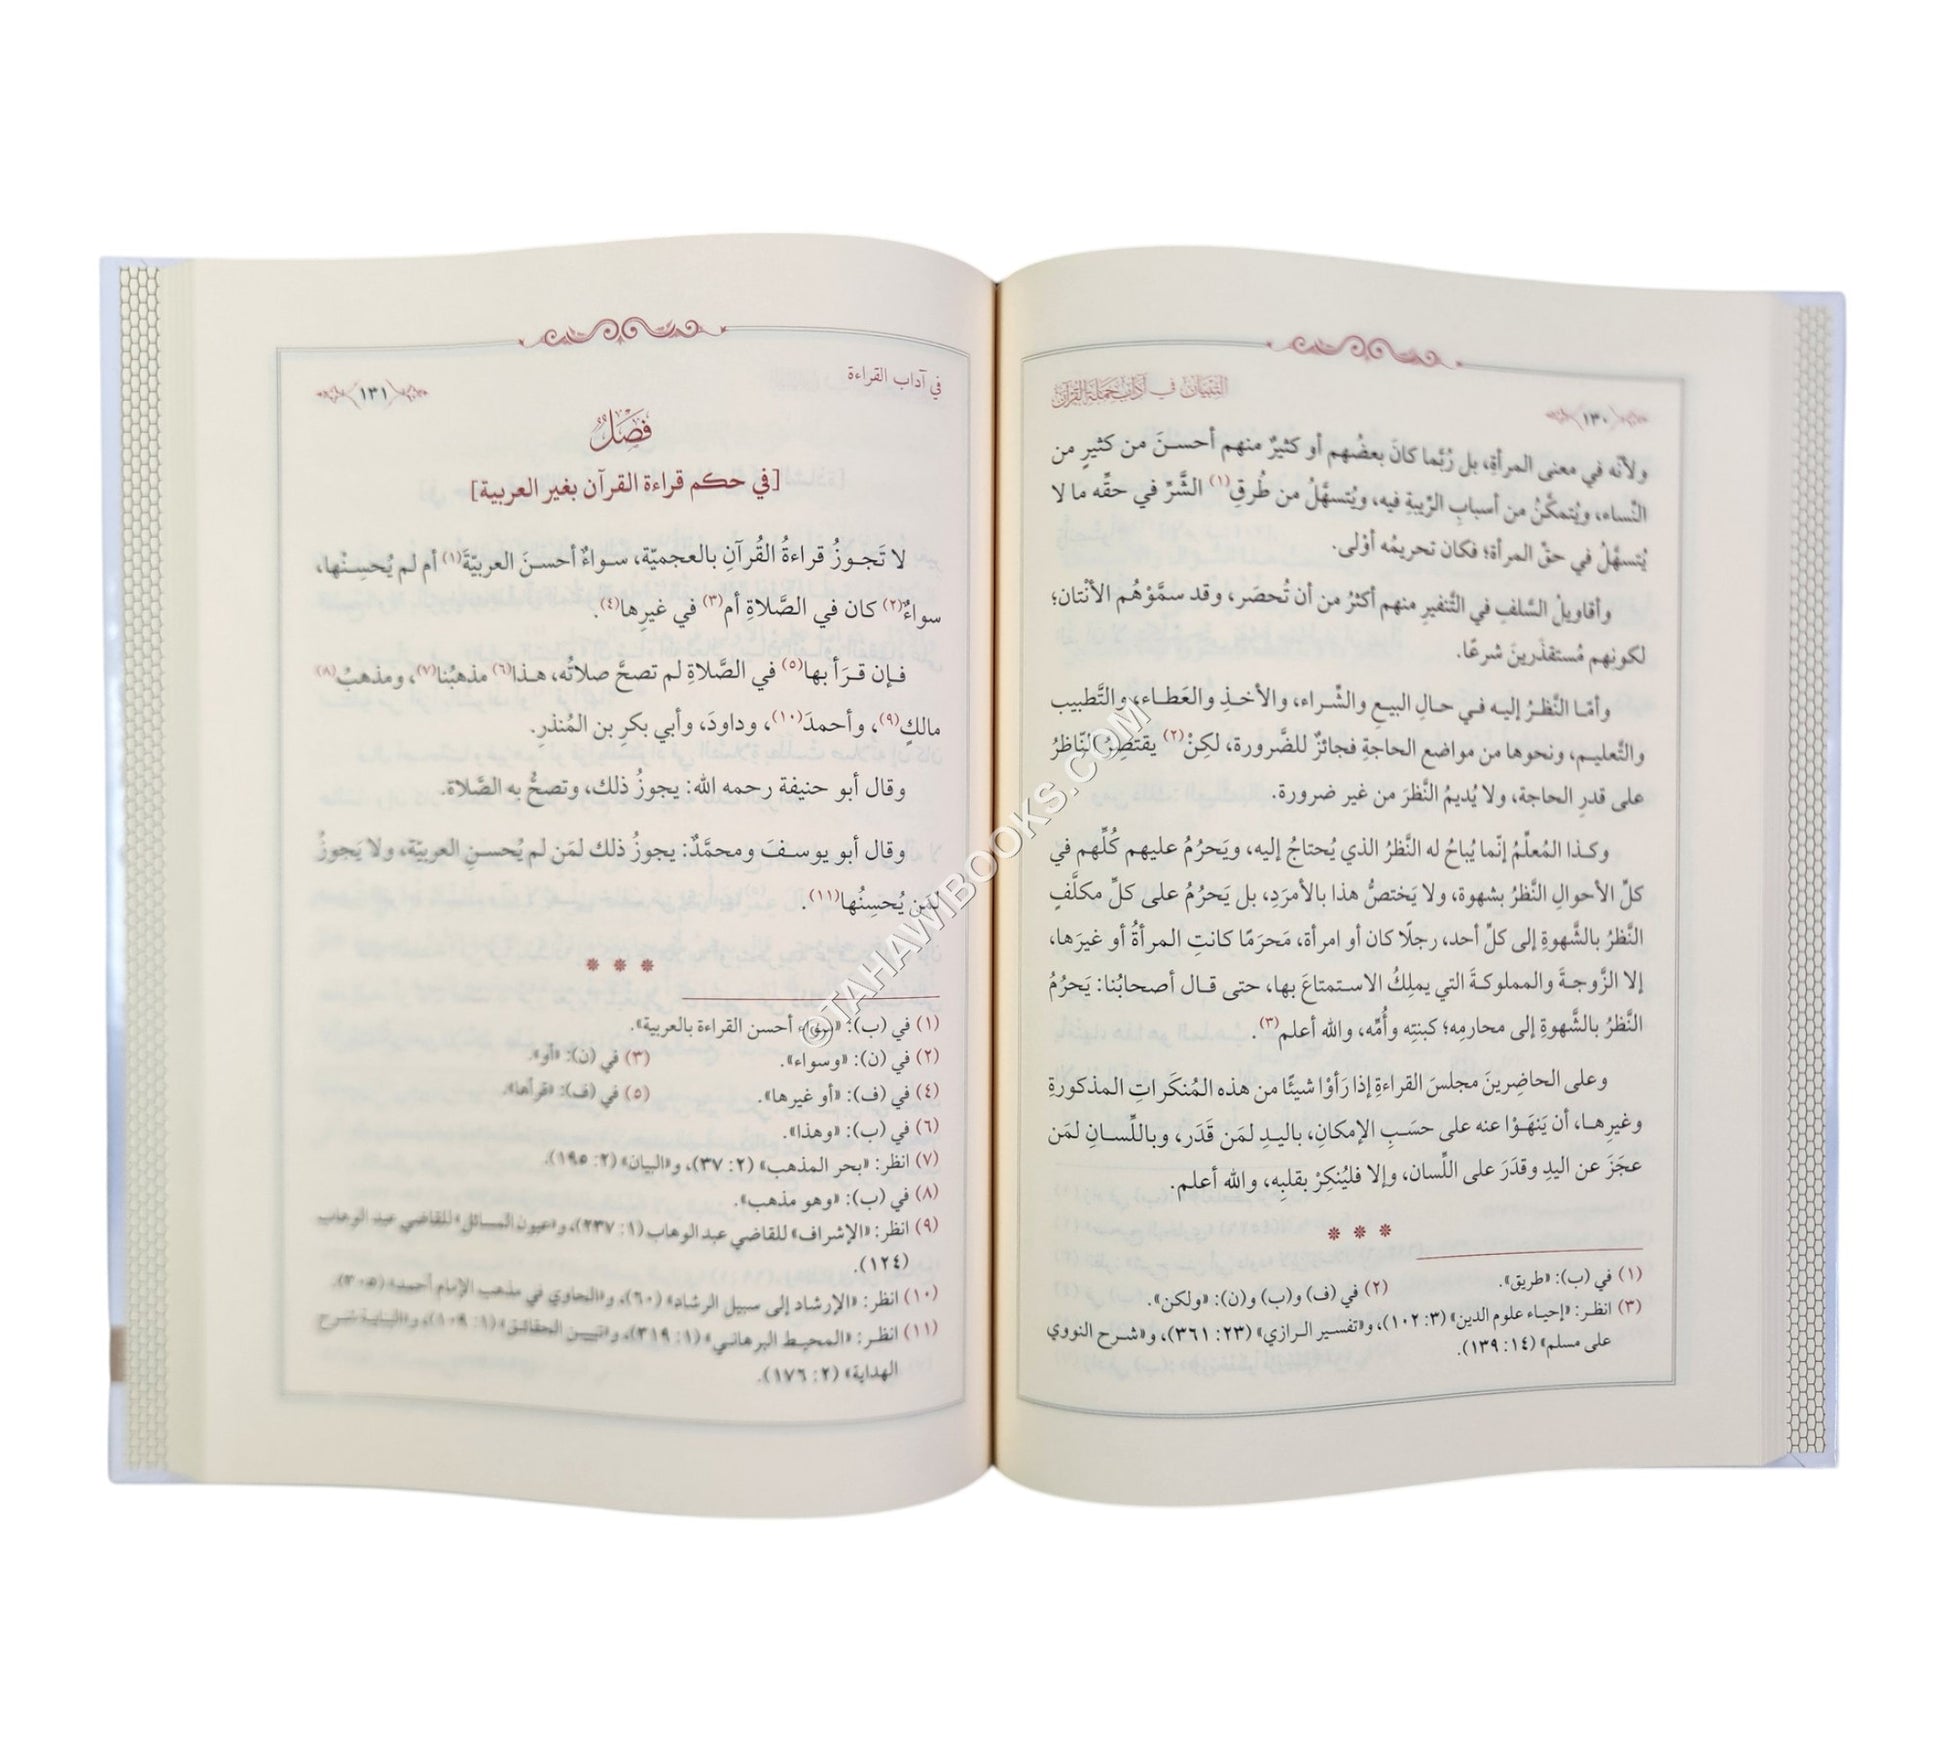 التبيان في آداب حملة القرآن
١٣٠
ولأنه في معنى المرأةِ، بل رُبَّما كانَ بعضُهم أو كثيرٌ منهم أحسنَ من كثيرٍ من
النِّساء، ويُتمكَّنُ من أسبابِ الرِّيبةِ فيه، ويُتسهَّلُ من طُرقِ(١) الشَّرِّ في حقِّه ما لا
يُتسهَّلُ في حقِّ المرأة؛ فكان تحريمُه أوْلى.
وأقاويلُ السَّلفِ في التَّنفيرِ منهم أكثرُ من أن تُحصَر، وقد سمَّوْهُم الأنْتان؛
لكونِهم مُستقذَرينَ شرعًا.
وأمّا النَّظرُ إليه في حالِ البيعِ والشِّراء، والأخذِ والعَطاء، والتَّطبيب
والتَّعليم، ونحوها من مواضع الحاجةِ فجائزٌ للضَّرورة، لكِنْ(٢) يقتصِرُ النّاظرُ
على قدرِ الحاجة، ولا يُديمُ النَّظرَ من غير ضرورة.
وكذا المُعلِّمُ إنّما يُباحُ له النَّظرُ الذي يُحتاجُ إليه، ويَحرُمُ عليهم كُلِّهم في
كلِّ الأحوالِ النَّظرُ بشهوة، ولا يَختصُّ هذا بالأمرَدِ، بل يَحرُمُ على كلِّ مكلَّفٍ
النَّظرُ بالشَّهوةِ إلى كلِّ أحد، رجلًا كان أو امرأة، مَحرَمًا كانتِ المرأةُ أو غيرَها،
إلا الزَّوجةَ والمملوكةَ التي يملِكُ الاستمتاعَ بها، حتى قال أصحابُنا: يَحرُمُ
النَّظرُ بالشَّهوةِ إلى محارمِه؛ كبنتِه وأُمِّه، والله أعلم(٣).
وعلى الحاضِرينَ مجلسَ القراءةِ إذا رَأوْا شيئًا من هذه المُنكَراتِ المذكورةِ
وغيرِها، أن يَنهَوْا عنه على حسَبِ الإمكانِ، باليدِ لمَن قَدَر، وباللِّسانِ لمَن
عجَزَ عن اليدِ وقدَرَ على اللِّسان، وإلا فليُنكِرْ بقلبِه، والله أعلم.
* * *
(١) في (ب): «طريق». (٢) في (ف) و(ب) و(ن): «ولكن».
(٣) انظر: «إحياء علوم الدين» (٣: ١٠٢)، و«تفسير الرازي» (٢٣: ٣٦١)، و«شرح النووي
على مسلم» (١٤: ١٣٩).
في آداب القراءة
١٣١
فَصْلٌ
[في حكم قراءة القرآن بغير العربية]
لا تَجوزُ قراءةُ القُرآنِ بالعجميّة، سواءٌ أحسنَ العربيّةَ(١) أم لم يُحسِنْها،
سواءٌ(٢) كان في الصَّلاةِ أم(٣) في غيرِها(٤).
فإن قرَأ بها(٥) في الصَّلاةِ لم تصحَّ صلاتُه، هذا(٦) مذهبُنا(٧)، ومذهبُ(٨)
مالكٍ(٩)، وأحمدَ(١٠)، وداودَ، وأبي بكرِ بن المُنذرِ.
وقال أبو حنيفة رحمه الله: يجوزُ ذلك، وتصحُّ به الصَّلاة.
وقال أبو يوسفَ ومحمَّدٌ: يجوزُ ذلك لمَن لم يُحسنِ العربيّة، ولا يَجوزُ
لمَن يُحسِنُها(١١).
* * *
(١) في (ب): «سواء أحسن القراءة بالعربية».
(٢) في (ن): «وسواء». (٣) في (ن): «أو».
(٤) في (ف): «أو غيرها». (٥) في (ف): «قرأها».
(٦) في (ب): «وهذا».
(٧) انظر: «بحر المذهب» (٢: ٣٧)، و«البيان» (٢: ١٩٥).
(٨) في (ب): «وهو مذهب».
(٩) انظر: «الإشراف» للقاضي عبد الوهاب (١: ٢٣٧)، و«عيون المسائل» للقاضي عبد الوهاب
(١٢٤).
(١٠) انظر: «الإرشاد إلى سبيل الرشاد» (٦٠)، و«الحاوي في مذهب الإمام أحمد» (٣٠٥).
(١١) انظر: «المحيط البرهاني» (١: ٣١٩)، و«تبيين الحقائق» (١: ١٠٩)، و«البناية شرح
الهداية» (٢: ١٧٦).
©TAHAWIBOOKS.COM